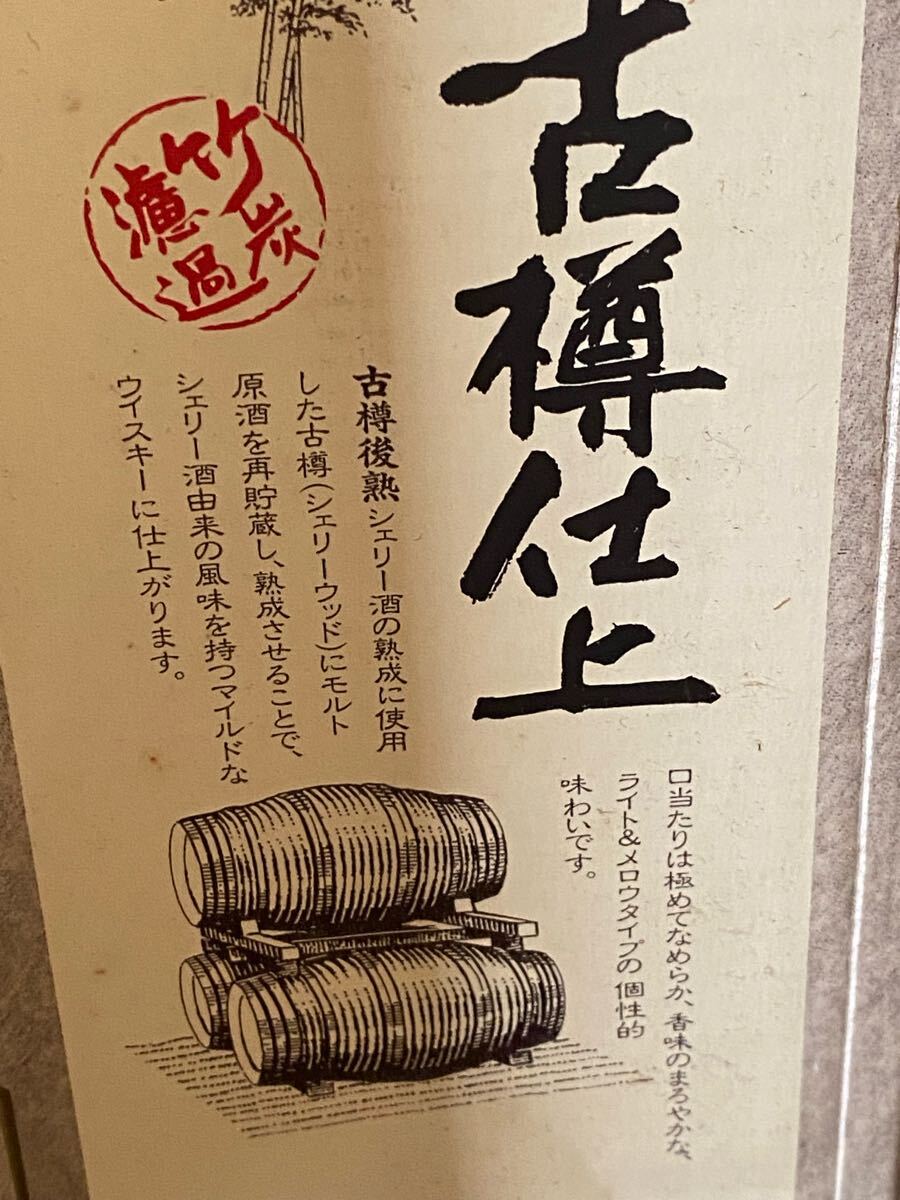 古樽仕上
口当たりは極めてなめらか、香味のまろやかな、
ライト&メロウタイプの個性的
味わいです。
竹炭
濾過
古樽後熟 シェリー酒の熟成に使用
した古樽(シェリーウッド)にモルト
原酒を再貯蔵し、熟成させることで、
シェリー酒由来の風味を持つマイルドな
ウイスキーに仕上がります。